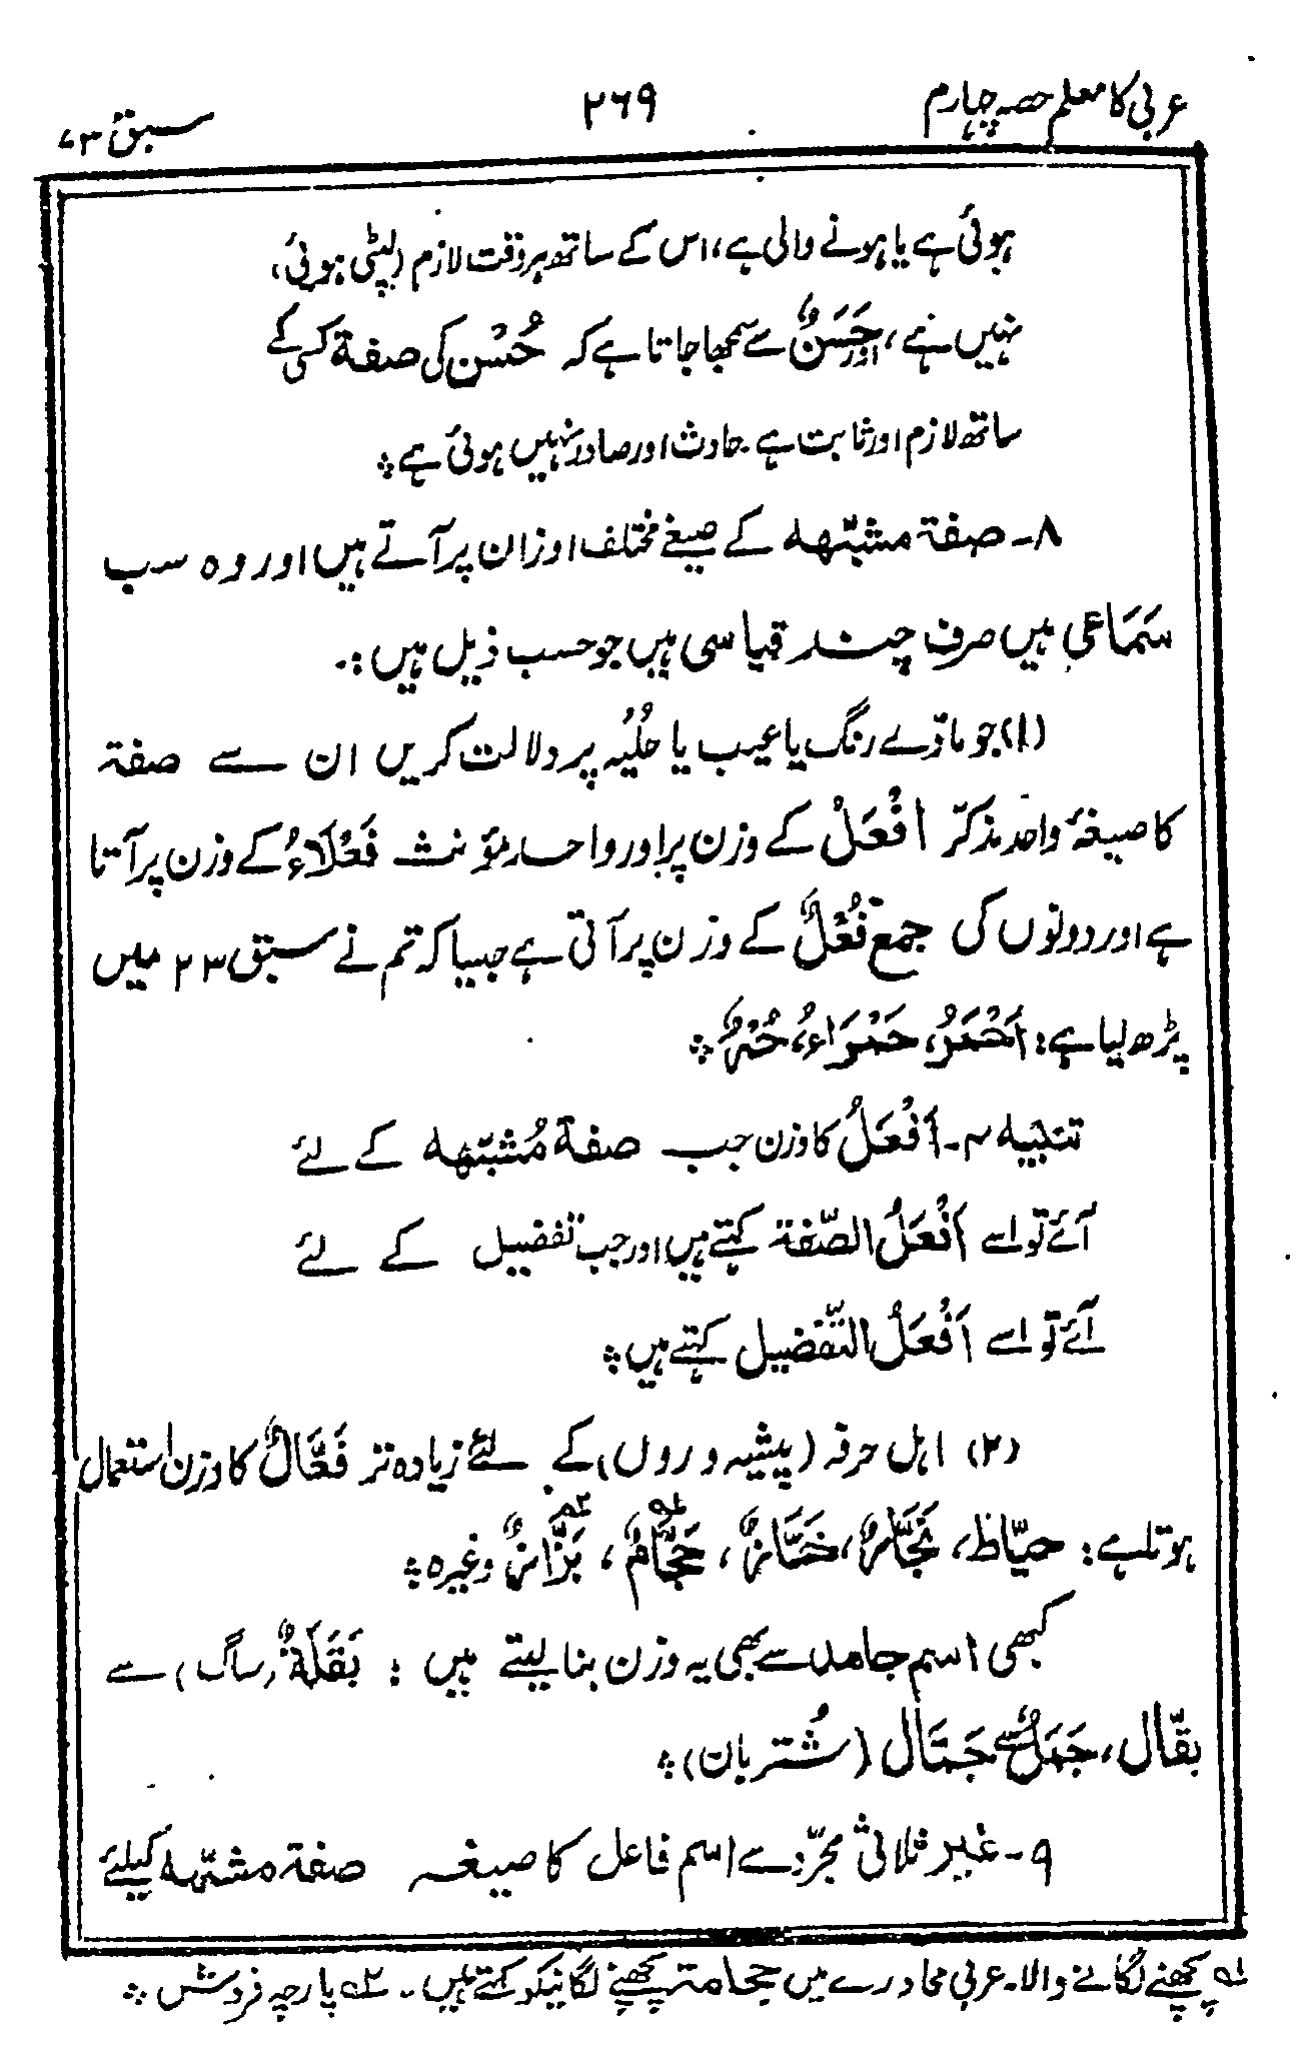 عربی کا معلم حصہ چہارم
۲۶۹
سبق ۷۳
ہوئی ہے یا ہونے والی ہے، اس کے ساتھ ہر وقت لازم (لپٹی ہوئی)
نہیں ہے، اور حَسَنٌ سے سمجھا جاتا ہے کہ حُسْن کی صفة کسی کے
ساتھ لازم اور ثابت ہے۔ حادث اور صادر نہیں ہوئی ہے ؞
۸۔ صفة مشبّهه کے صیغے مختلف اوزان پر آتے ہیں اور وہ سب
سَمَاعی ہیں صرف چند قیاسی ہیں جو حسب ذیل ہیں :۔
(۱) جو مادّے رنگ یا عیب یا حُلْیَہ پر دلالت کریں ان سے صفة
کا صیغۂ واحد مذکّر اَفْعَلُ کے وزن پر اور واحد مؤنث فَعْلَاءُ کے وزن پر آتا
ہے اور دونوں کی جمع فُعْلٌ کے وزن پر آتی ہے جیسا کہ تم نے سبق ۲۳ میں
پڑھ لیا ہے : اَحْمَرُ، حَمْرَاءُ، حُمْرٌ ؞
تنبیه ۴۔ اَفْعَلُ کا وزن جب صفة مُشبّهه کے لئے
آئے تو اسے اَفْعَلُ الصّفة کہتے ہیں اور جب تفضیل کے لئے
آئے تو اسے اَفْعَلُ التّفضیل کہتے ہیں ؞
(۲) اہل حرفہ (پیشہ وروں) کے لئے زیادہ تر فَعَّالٌ کا وزن استعمال
ہوتا ہے : خیّاط، نَجَّارٌ، خَبَّازٌ، حَجَّامٌ ؎۱، بَزَّازٌ ؎۲ وغیرہ ؞
کبھی اسم جامد سے بھی یہ وزن بنا لیتے ہیں : بَقْلَةٌ (ساگ) سے
بقّال، جَمَلٌ سے جَمَّال (شُتربان) ؞
۹۔ غیر ثلاثی مجرّد سے اسم فاعل کا صیغہ صفة مشبّهه کیلئے
؎۱ پچھنے لگانے والا۔ عربی محاورے میں حجامة پچھنے لگانیکو کہتے ہیں۔ ؎۲ پارچہ فروش ؞